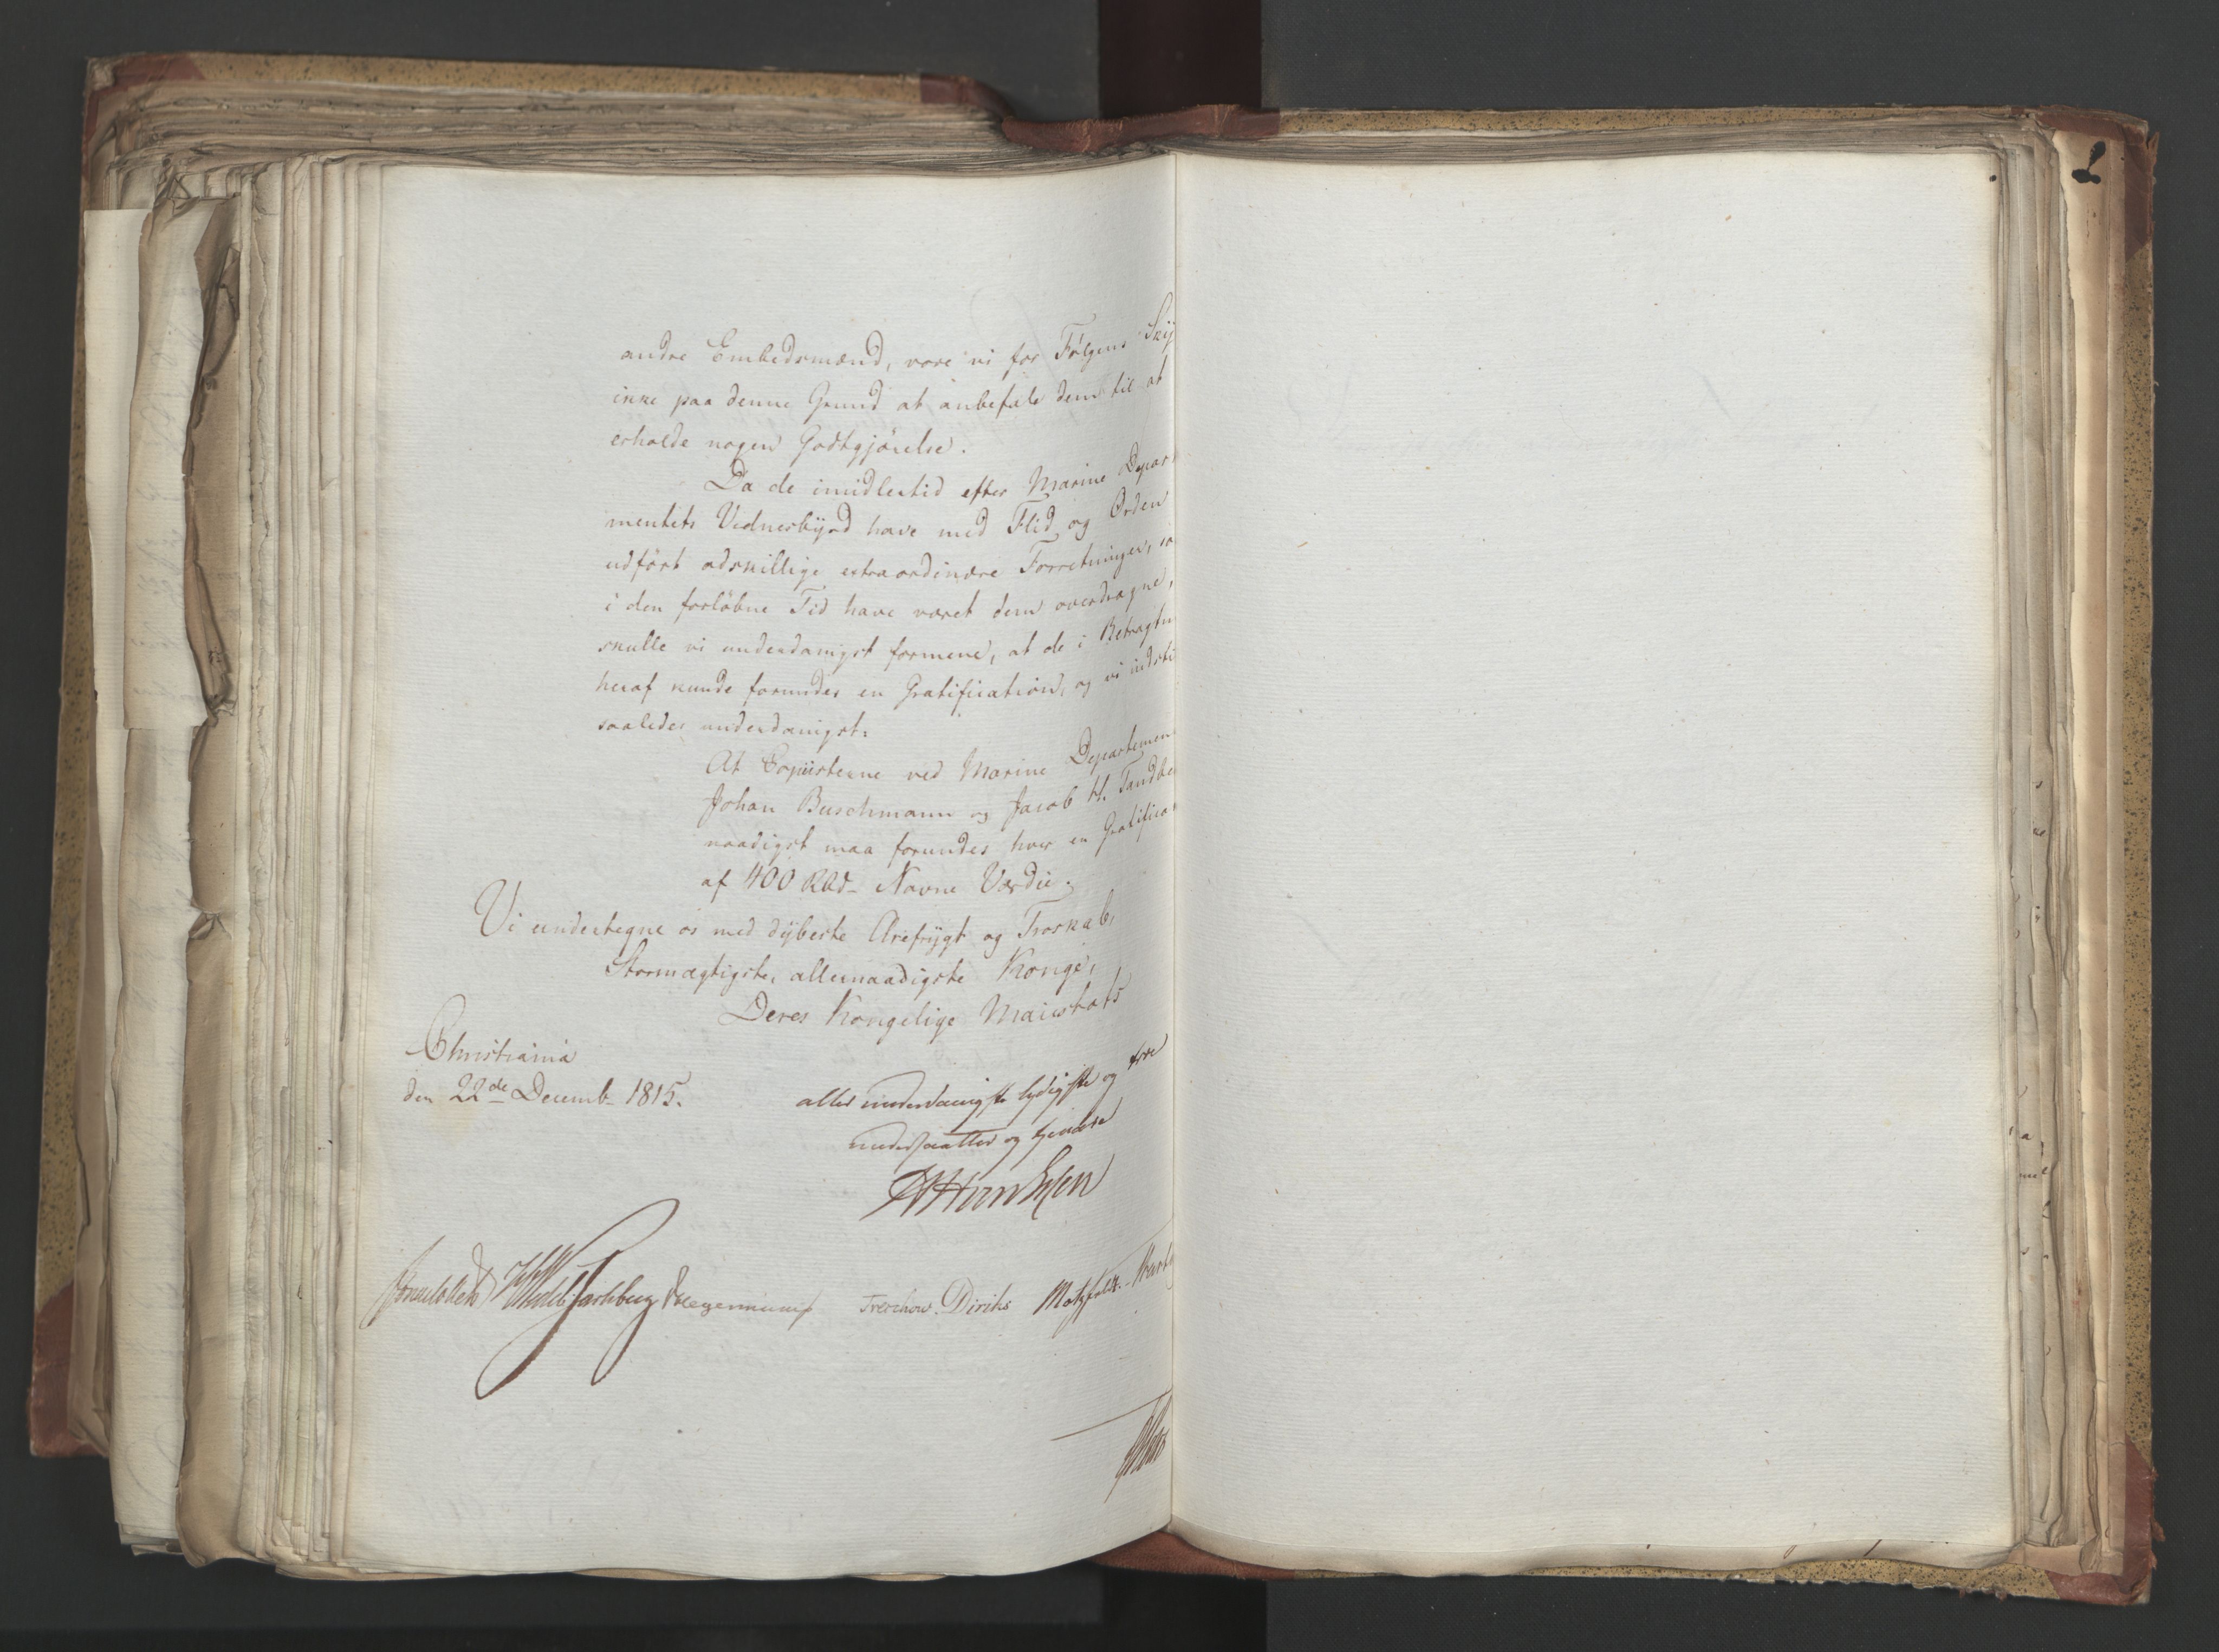 andre Embedsmænd, vove vi for Følgens Sky
ikke paa denne Grund at anbefale dem til at
erholde nogen Godtgjörelse.
Da de imidlertid efter Marine Depar
mentets Vidnesbÿrd have med Flid og Orden
udført adskillige extraordinære Forretninger, so
i den forløbne Tid have været dem overdragne,
skulle vi underdanigst formene, at de i Betragtn
heraf kunde forundes en Gratification, og vi indsti
saaledes underdanigst:
At Copiisterne ved Marine Departemen
Johan Buschmann og Jacob H. Tandbe
naadigst maa forundes hver en Gratifica
af 400 Rbd. Navne Værdie.
Vi undertegne os med dÿbeste Ærefrÿgt og Troskab,
Stormægtigste, allernaadigste Konge,
Deres Kongelige Maiestæts
Christiania
den 22de Decemb. 1815.
aller underdanigste lydigste og troe
undersaatter og tjenere
Sommerhielm Wedel Jarlsberg Treschow. Diriks Motzfeldt.